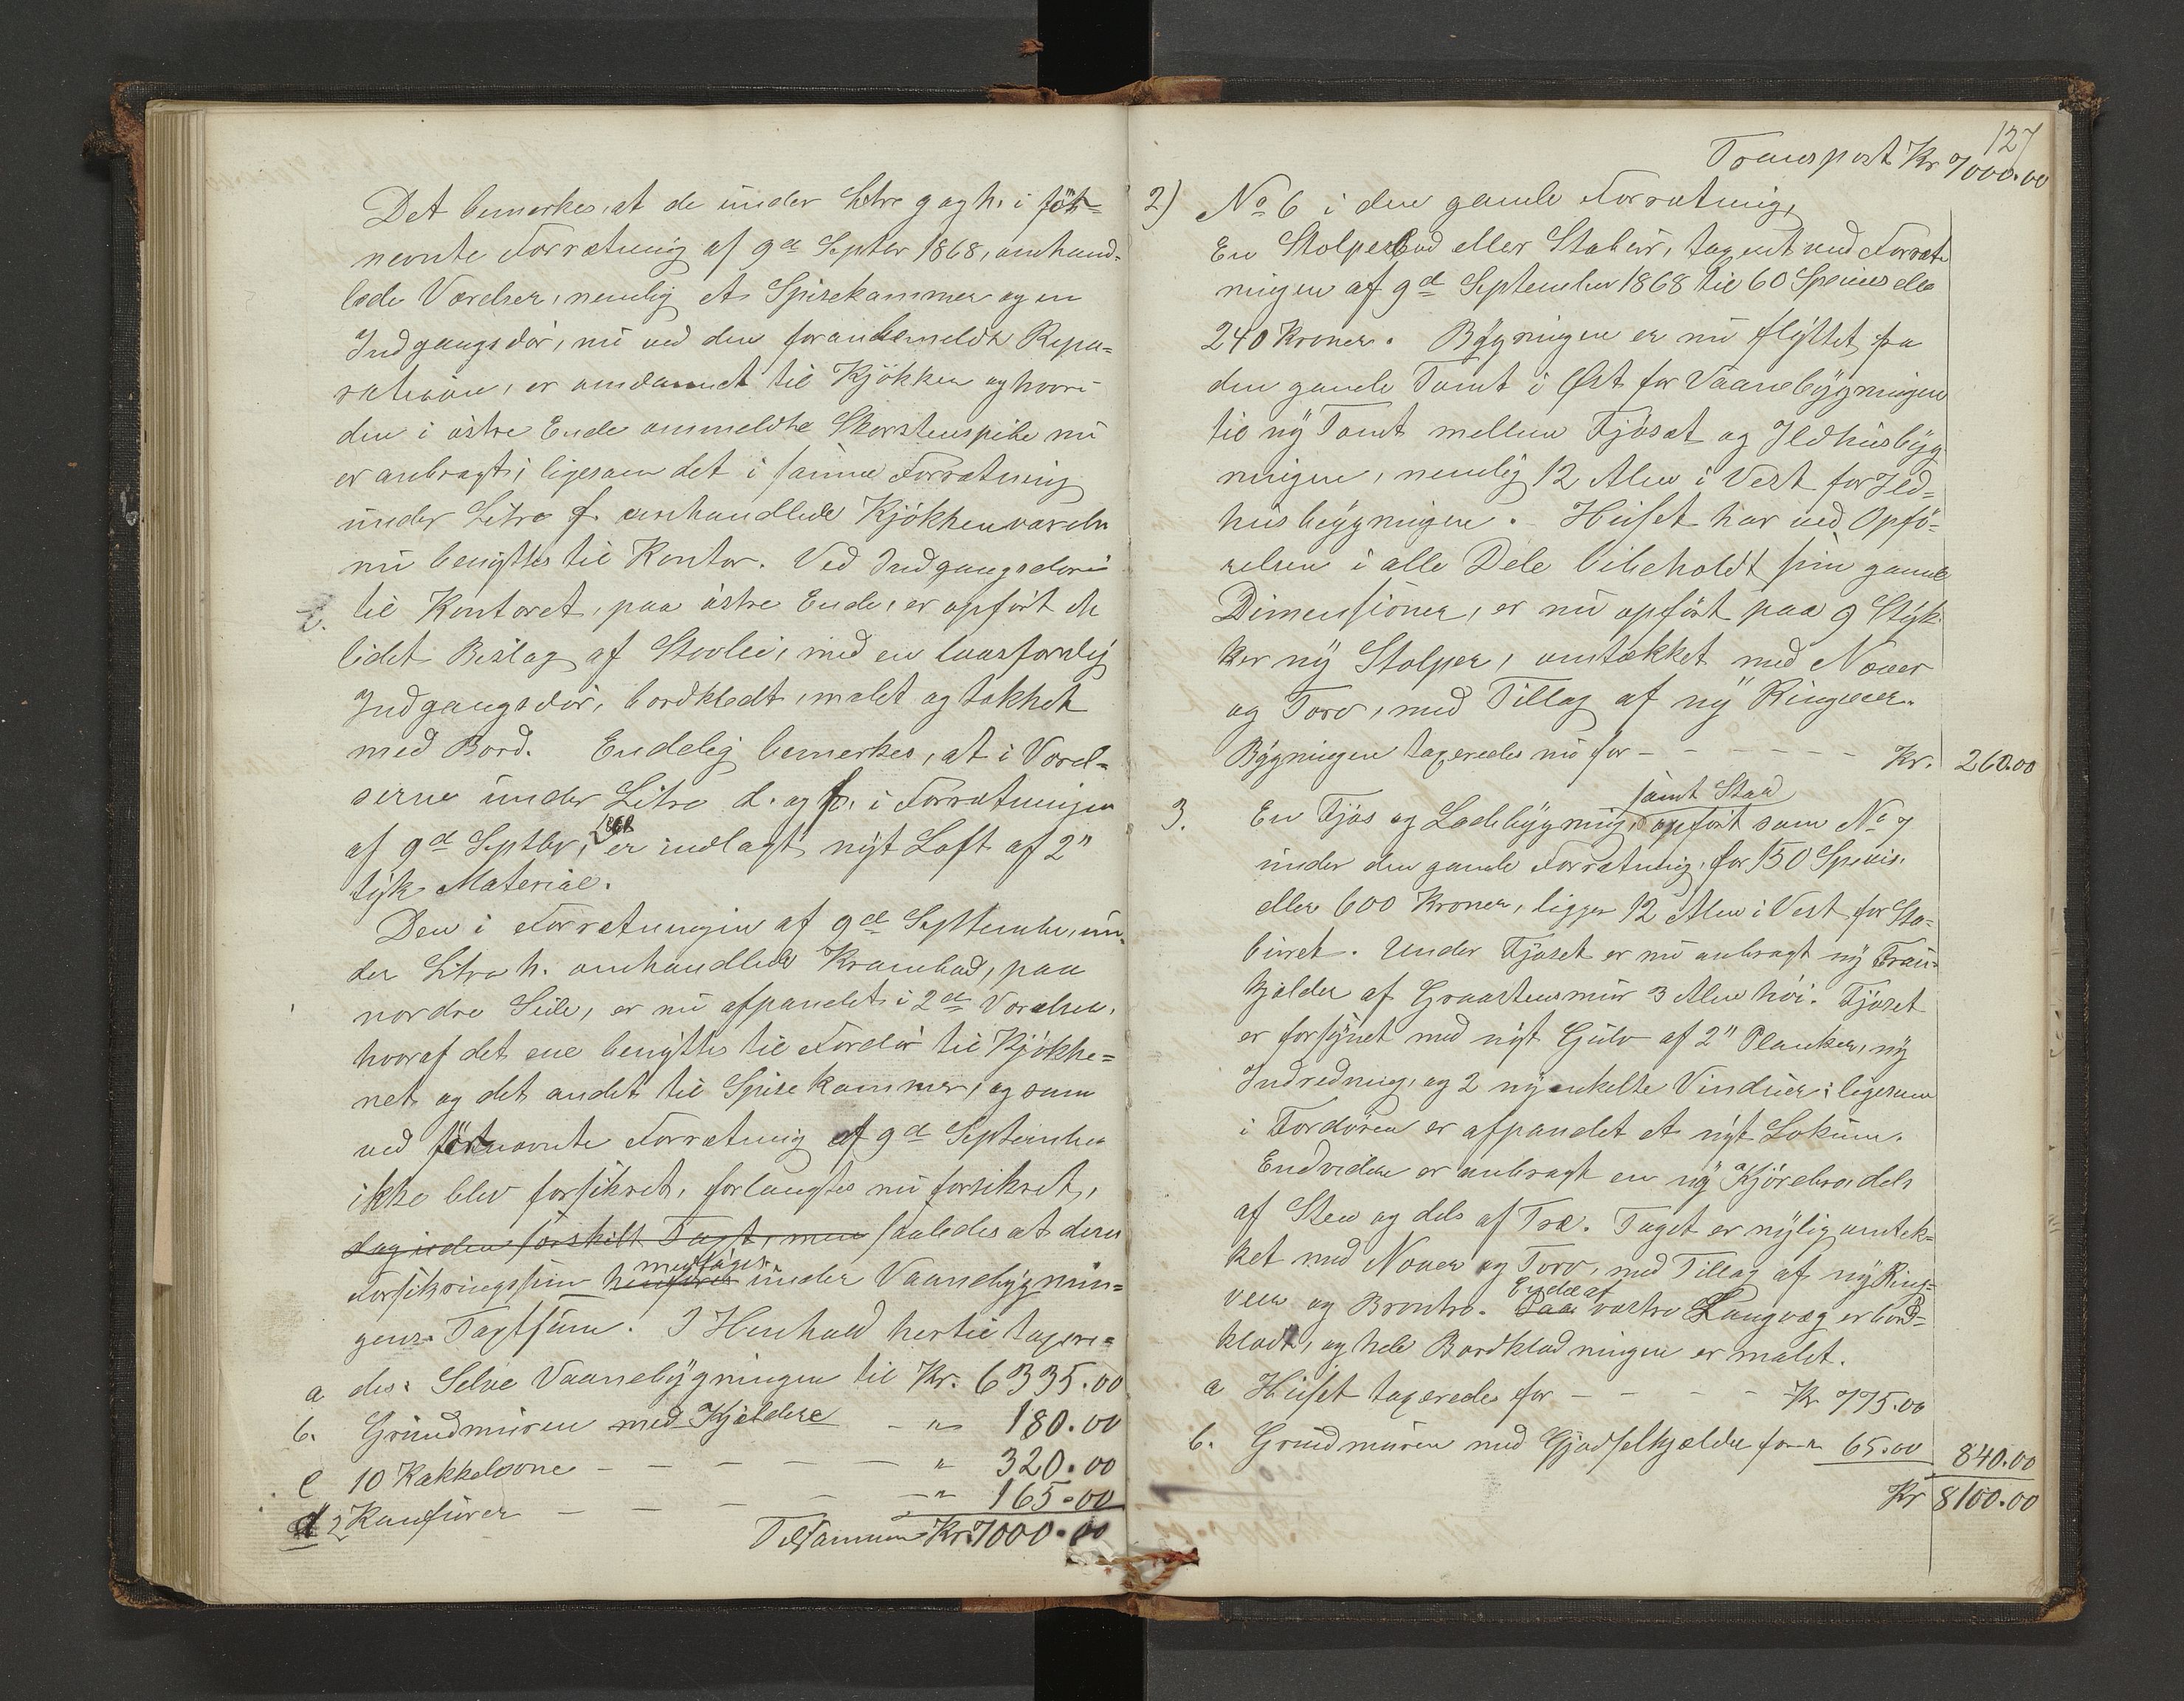 Det bemerkes, at de under Litra g og h. i först=
nevnte Forretning af 9de Septbr 1868, omhand=
lede Værelser, nemlig et Spisekammer og en
Indgangsdör, nu ved den foranbemeldte Repa=
ration, er omdannet til Kjökken og hvori
den i östre Ende ommeldte Skorstenspibe nu
er anbragt; ligesom det i samme Forretning
under Litra f. omhandlede Kjökkenværelse
nu benyttes til Kontor. Ved Indgangsdören
til Kontoret, paa östre Ende, er opfört et
lidet Bislag af Stovlei, med en laasfærdig
Indgangsdör, bordklædt, malet og tækket
med Bord. Endelig bemerkes, at i Værel=
serne under Litra d. og f. i Forretningen
af 9de Septbr, 1868 er indlagt nyt Loft af 2"
tyk Material.
Den i Forretningen af 9de September, un=
der Litra h. omhandlede Krambod, paa
nordre Side, er nu afpanelet i 2de Værelser,
hvoraf det ene benyttes til Fordör til Kjökke=
net og det andet til Spisekammer, og som
ved förstnævnte Forretning af 9de September
ikke blev forsikret, forlanges nu forsikret,
dog uden særskilt Taxt, men saaledes at dens
medtages
Forsikringssum henföres under Vaanebygnin=
gens Taxtsum. I Henhold hertil taxere=
a des: Selve Vaanebygningen til Kr. 6335.00
b. Grundmuren med Kjeldere - " 180.00
c 10 Kakkelovne - - - - - " 320.00
d 2 Komfurer - - - - - " 165.00
Tilsammen Kr. 7000.00
127
Transport Kr 7000.00
2) No 6 i den gamle Forretning,
En Stolpebod eller Stabur, taxeret ved Forret=
ningen af 9de September 1868 til 60 Species eller
240 Kroner. Bygningen er nu flyttet fra
den gamle Tomt i Öst for Vaanebygningen
til ny Tomt mellem Fjöset og Ildhusbyg
ningen, nemlig 12 Alen i Vest for Ild=
husbygningen. Huset har ved Opfö=
relsen i alle Dele bibeholdt sine gamle
Dimensioner, er nu opfört paa 9 Styk=
ker ny Stolper, omtækket med Næver
og Torv, med Tillæg af ny Ringveer.
Bygningen taxeredes nu for - - - - - - Kr. 260.00
samt Stad
3. En Fjös og Ladebygning, opfört som No 7
under den gamle Forretning, for 150 Species,
eller 600 Kroner, ligger 12 Alen i Vest for Sta=
buret. Under Fjöset er nu anbragt ny Frau=
kjelder af Graastensmur 3 Alen höi. Fjöset
er forsynet med nyt Gulv af 2" Planker, ny
Indredning, og 2 ny enkelte Vinduer; ligesom
i Fordören er afpanelet et nyt Lokum.
Endvidere er anbragt en ny Kjörebro, dels
af Sten og dels af Træ. Taget er nylig omtæk=
ket med Næver og Torv, med Tillæg af ny Ring=
Ende af
veer og Brontro. Paa vestre Langvæg er bord=
klædt, og hele Bordklædningen er malet.
a Huset taxeredes for - - - - Kr. 775.00
b. Grundmuren med Gjödselkjælder for " 65.00 840.00
Kr 8100.00